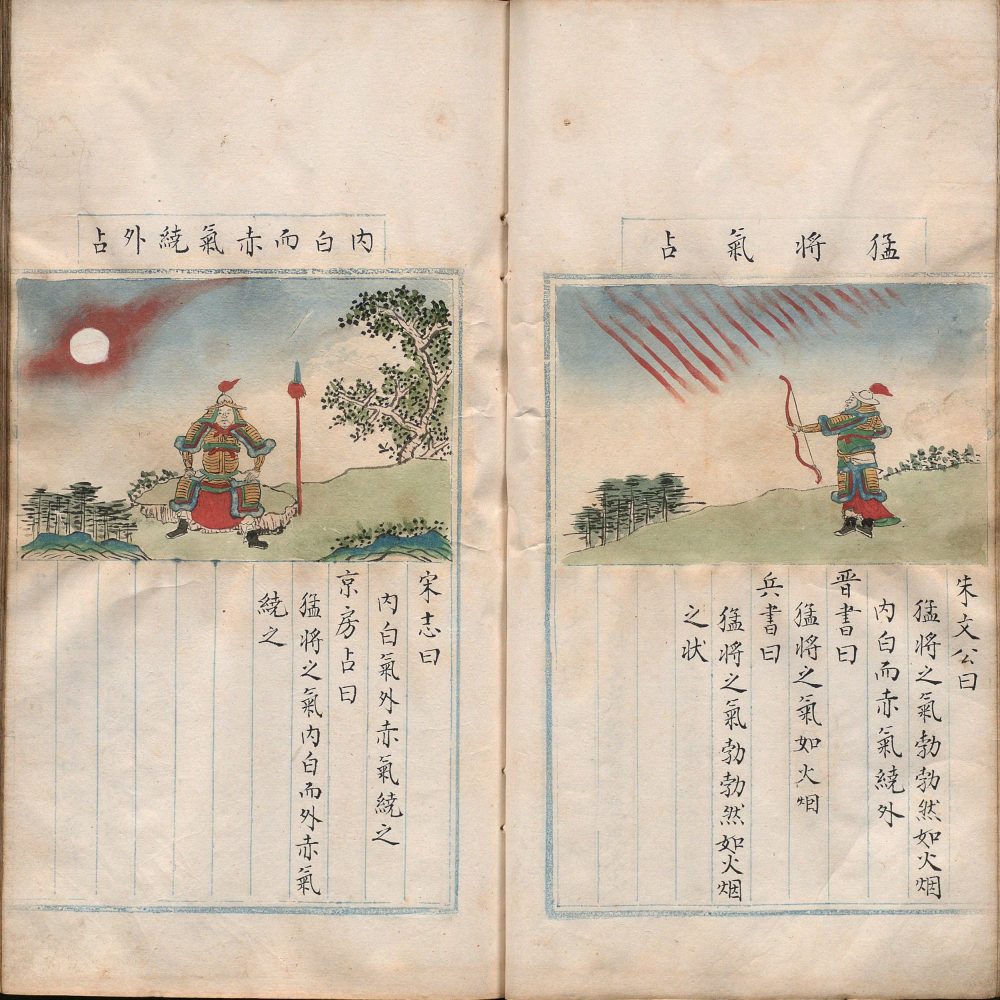 猛将氣占
朱文公曰
猛将之氣勃勃然如火烟
内白而赤氣繞外
晉書曰
猛将之氣如火烟
兵書曰
猛将之氣勃勃然如火烟
之状
内白而赤氣繞外占
宋志曰
内白氣外赤氣繞之
京房占曰
猛将之氣内白而外赤氣
繞之